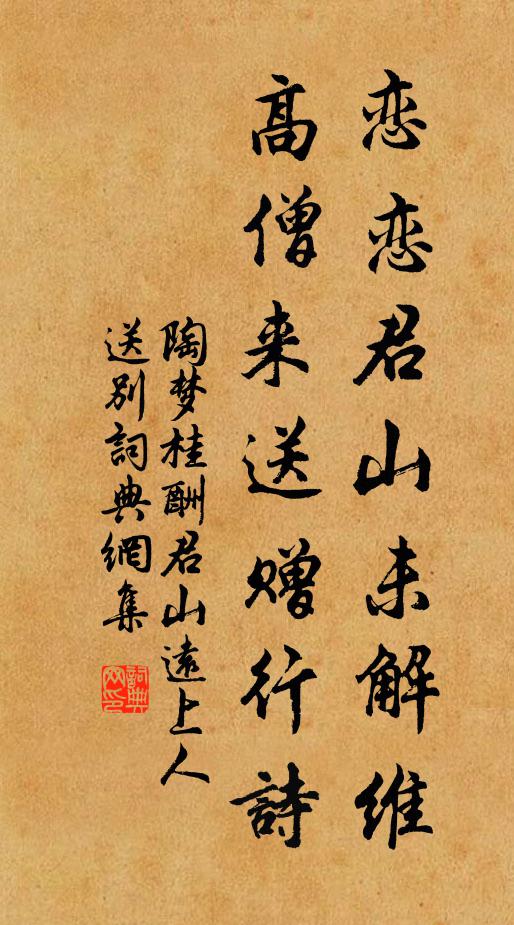 恋恋君山未解维
高僧来送赠行詩
陶梦桂酬君山遠上人
送别詞典網集
詞典网印